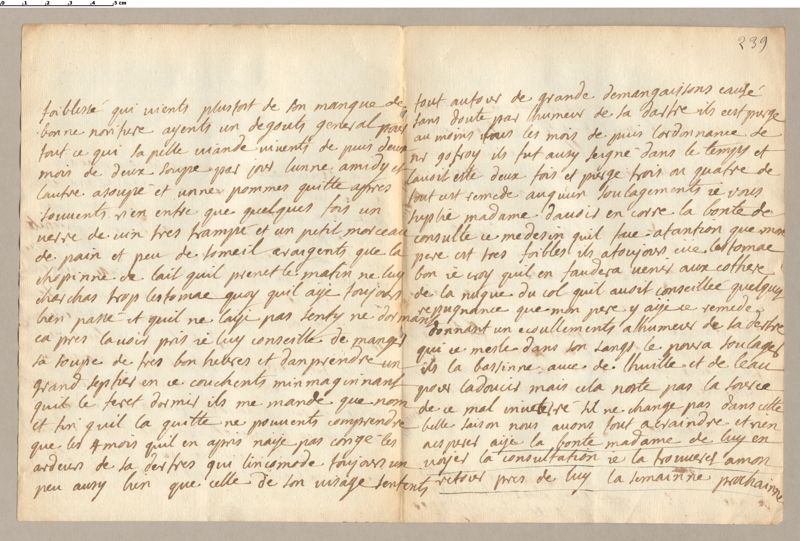 239
foiblesse qui vients plusfort de son manque de
bonne noriture ayents un degouts general pour
tout ce qui sapelle viande vivents de puis deux
mois de deux soupe par jour lunne amidy et
lautre asoupé et unne pommes quitte apres
souvents rien entre que quelques fois un
verre de vin tres trampé et un petit morceau
de pain et peu de someil araigents que la
chopinne de lait quil prenet le matin ne luy
charchas trop lestomac quoy quil aije toujours
bien passé et quil ne laije pas senty ne dormants
ca pres lavoir pris ie luy conseille de manger
sa soupe de tres bon heures et dan prendre un
grand septier en ce couchents minmaginnant
quil le feret dormir ils me mande que non
et sin quil la quitte ne pouvents comprendre
que les 4 mois quil en apris naije pas corigé les
ardeurs de sa dertres qui lincomode toujours un
peu ausy bien que celle de son visage sentents
tout autour de grande demangaisons causé
sans doute par lhumeur de sa dartre ils est purge
au moins tous les mois de puis lordonnance de
mr gofroy ils fut ausy seigné dans le temps et
lavoit esté deux fois et purge trois ou quatre de
tout cest remede auqun soulagements ie vous
suplie madame davoir en corre la bonté de
consulte ce medesin quil fae atantion que mon
pere est tres foibles ils atoujors eue lestomac
bon ie croy quil en faudera venir aux cothere
de la nuque du col quil avoit conseillée quelque
repugnance que mon pere y aije ce remede
donnant un ecoullements a lhumeur de sa dertre
qui ce mesle dans son sangs le poura soulager
ils la bassinne avec de lhuille et de leau
pour ladoucir mais cela norte pas la source
de ce mal inveterré sil ne change pas dans cette
belle saison nous avons tout acraindre et rien
aesperer aije la bonté madame de luy en
voyer la consultation ie la trouveres amon
retour pres de luy la semainne prochainne